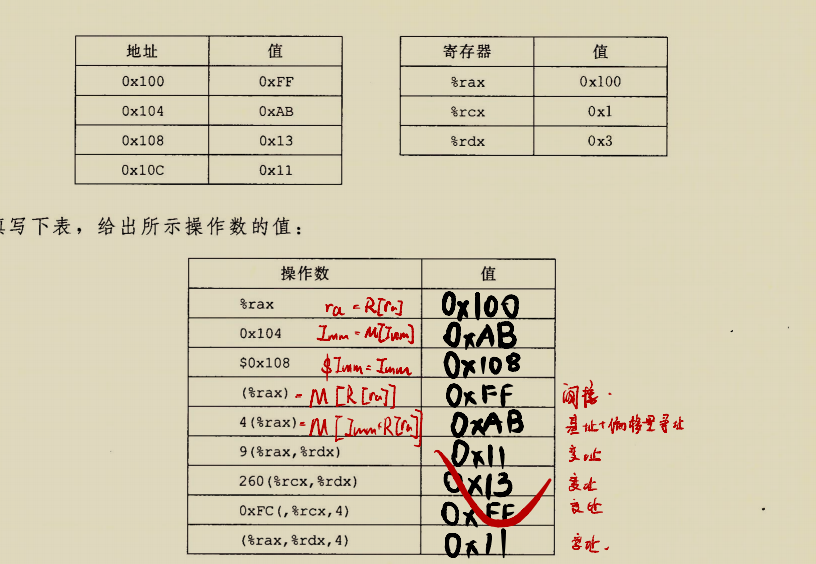 地址 值
0x100 0xFF
0x104 0xAB
0x108 0x13
0x10C 0x11
寄存器 值
%rax 0x100
%rcx 0x1
%rdx 0x3
写下表，给出所示操作数的值：
操作数 值
%rax ra = R[ra] 0x100
0x104 Imm = M[Imm] 0xAB
$0x108 $Imm = Imm 0x108
(%rax) = M[R[ra]] 0xFF 间接.
4(%rax) = M[Imm+R[ra]] 0xAB 基址+偏移量寻址
9(%rax,%rdx) 0x11 变址
260(%rcx,%rdx) 0x13 变址
0xFC(,%rcx,4) 0xFF 变址
(%rax,%rdx,4) 0x11 变址.